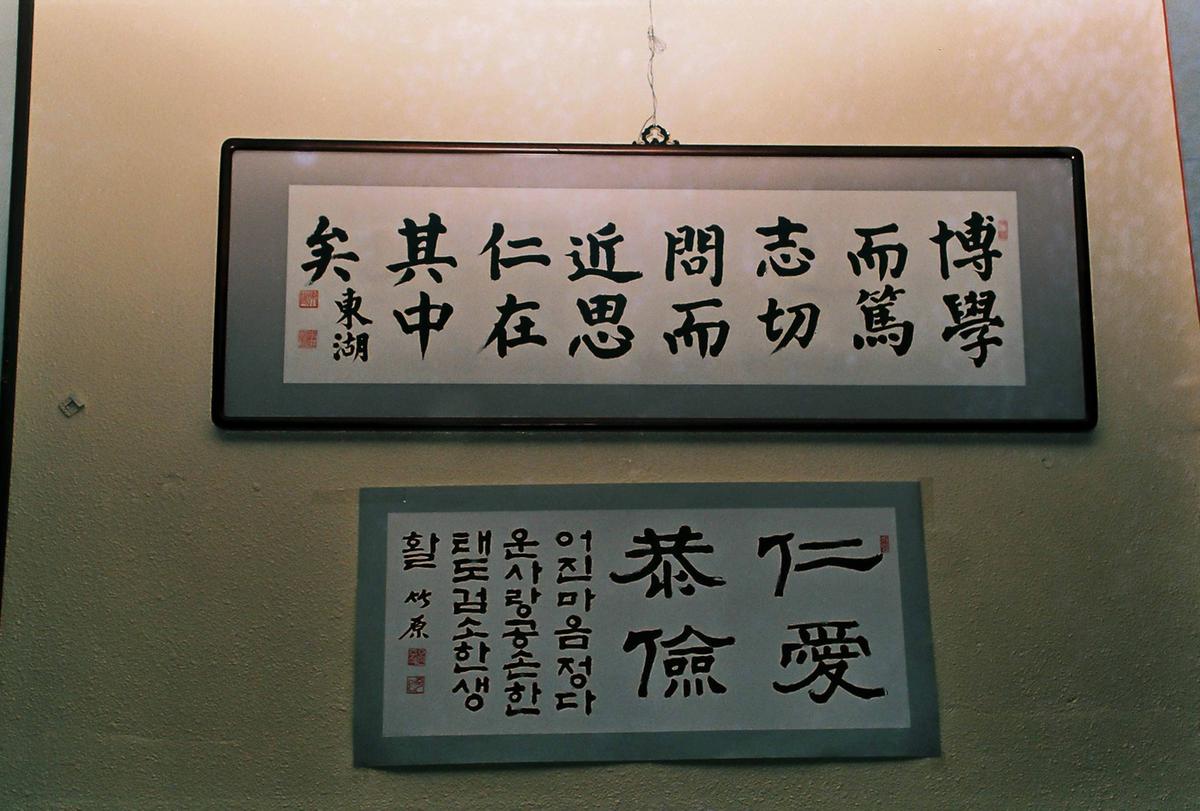 博學
而篤
志切
問而
近思
仁在
其中
矣
東湖
仁愛
恭儉
어진마음정다
운사랑공손한
태도검소한생
활
竹原